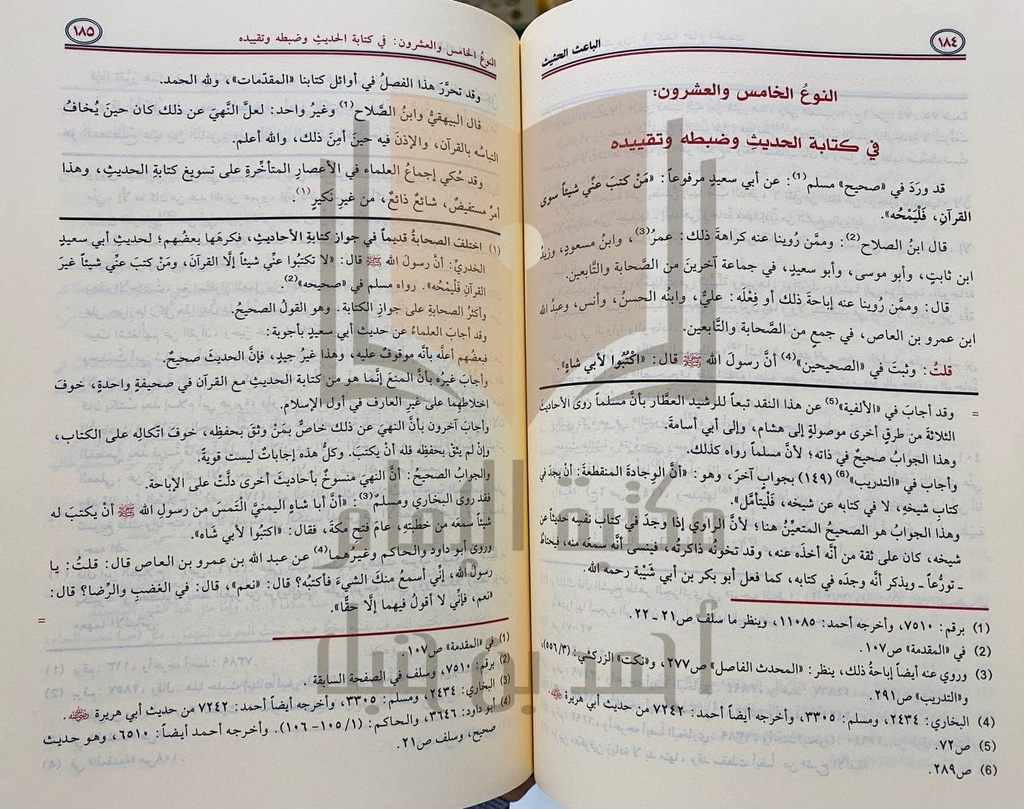 ١٨٤
الباعث الحثيث
النوعُ الخامس والعشرون:
في كتابة الحديثِ وضبطه وتقييده
قد ورَدَ في «صحيح» مسلم(1): عن أبي سعيدٍ مرفوعاً: «مَنْ كتبَ عنِّي شيئاً سوى
القرآنِ، فَلْيَمْحُه».
قال ابنُ الصلاح(2): وممَّن رُوينا عنه كراهةَ ذلك: عمرُ(3)، وابنُ مسعودٍ، وزيدُ
ابن ثابتٍ، وأبو موسى، وأبو سعيدٍ، في جماعةٍ آخرينَ من الصَّحابة والتَّابعين.
قال: وممَّن رُوينا عنه إباحةَ ذلك أو فِعْلَه: عليٌّ، وابنُه الحسنُ، وأنس، وعبدُ الله
ابن عمرو بن العاص، في جمعٍ من الصَّحابة والتَّابعين.
قلتُ: وثبتَ في «الصحيحين»(4) أنَّ رسولَ الله ﷺ قال: «اكْتُبُوا لأبي شاهٍ».
= وقد أجابَ في «الألفية»(5) عن هذا النقد تبعاً للرشيد العطَّار بأنَّ مسلماً روى الأحاديثَ
الثلاثةَ من طرقٍ أخرى موصولةٍ إلى هشام، وإلى أبي أسامةَ.
وهذا الجوابُ صحيحٌ في ذاته؛ لأنَّ مسلماً رواه كذلك.
وأجابَ في «التدريب»(6) (١٤٩) بجوابٍ آخرَ، وهو: «أنَّ الوِجادةَ المنقطعةَ: أنْ يجدَ في
كتابِ شيخِه، لا في كتابِه عن شيخه، فَلْيُتأمَّل».
وهذا الجوابُ هو الصحيحُ المتعيِّنُ هنا؛ لأنَّ الراوي إذا وجدَ في كتاب نفسِه حديثاً عن
شيخه، كان على ثقةٍ من أنَّه أخذَه عنه، وقد تخونُه ذاكرتُه، فينسى أنَّه سمعَه منه، فيحتاطُ
ـ تورُّعاً ـ ويذكر أنَّه وجدَه في كتابه، كما فعل أبو بكر بن أبي شَيْبة رحمه الله.
(1) برقم: ٧٥١٠، وأخرجه أحمد: ١١٠٨٥، وينظر ما سلف ص٢١ ـ ٢٢.
(2) في «المقدمة» ص١٠٧.
(3) وروي عنه أيضاً إباحةُ ذلك، ينظر: «المحدث الفاصل» ص٢٧٧، و«نكت» الزركشي: (٥٥٦/٣)،
و«التدريب» ص٢٩١.
(4) البخاري: ٢٤٣٤، ومسلم: ٣٣٠٥، وأخرجه أيضاً أحمد: ٧٢٤٢ من حديث أبي هريرة ﵁.
(5) ص٧٢.
(6) ص٢٨٩.
النوعُ الخامس والعشرون: في كتابة الحديثِ وضبطه وتقييده
١٨٥
وقد تحرَّرَ هذا الفصلُ في أوائل كتابنا «المقدّمات»، ولله الحمد.
قال البيهقيُّ وابنُ الصَّلاح(1) وغيرُ واحد: لعلَّ النَّهيَ عن ذلك كان حينَ يُخافُ
التباسُه بالقرآن، والإذنَ فيه حينَ أمِنَ ذلك، والله أعلم.
وقد حُكي إجماعُ العلماء في الأعصارِ المتأخِّرة على تسويغ كتابةِ الحديثِ، وهذا
أمرٌ مستفيضٌ، شائعٌ ذائعٌ، من غيرِ نَكيرٍ(١)
(١) اختلفَ الصحابةُ قديماً في جواز كتابةِ الأحاديثِ، فكرهَها بعضُهم؛ لحديثِ أبي سعيدٍ
الخُدريِّ: أنَّ رسولَ الله ﷺ قال: «لا تكتبُوا عنِّي شيئاً إلَّا القرآنَ، ومَنْ كتبَ عنِّي شيئاً غيرَ
القرآنِ فَلْيمحُه». رواه مسلم في «صحيحه»(2).
وأكثرُ الصحابةِ على جوازِ الكتابة. وهو القولُ الصحيحُ.
وقد أجابَ العلماءُ عن حديثِ أبي سعيدٍ بأجوبة:
فبعضُهم أعلَّه بأنَّه موقوفٌ عليه، وهذا غيرُ جيدٍ، فإنَّ الحديثَ صحيحٌ.
وأجابَ غيرُه بأنَّ المنعَ إنَّما هو من كتابة الحديثِ مع القرآن في صحيفةٍ واحدةٍ، خوفَ
اختلاطِهما على غيرِ العارف في أول الإسلام.
وأجابَ آخرون بأنَّ النهيَ عن ذلك خاصٌّ بمَنْ وثقَ بحفظِه، خوفَ اتكالِه على الكتاب،
وإنْ لم يثقْ بحفظِه فله أنْ يكتبَ. وكلُّ هذه إجاباتٌ ليست قويةً.
والجوابُ الصحيحُ: أنَّ النهيَ منسوخٌ بأحاديثَ أخرى دلَّتْ على الإباحة.
فقد روى البخاري ومسلم(3): «أنَّ أبا شاهٍ اليمنيَّ الْتَمسَ من رسولِ الله ﷺ أنْ يكتبَ له
شيئاً سمعَه من خطبتِه، عامَ فتحِ مكةَ، فقال: «اكتبُوا لأبي شَاه».
وروى أبو داود والحاكم وغيرُهما(4) عن عبد الله بن عمرو بن العاص قال: قلتُ: يا
رسولَ الله، إنِّي أسمعُ منكَ الشيءَ فأكتبُه؟ قال: «نعم»، قال: في الغضبِ والرِّضا؟ قال:
«نعم، فإنِّي لا أقولُ فيهما إلَّا حقًّا». =
(1) في «المقدمة» ص١٠٧.
(2) برقم: ٧٥١٠، وسلف في الصفحة السابقة.
(3) البخاري: ٢٤٣٤، ومسلم: ٣٣٠٥، وأخرجه أيضاً أحمد: ٧٢٤٢ من حديث أبي هريرة ﵁.
(4) أبو داود: ٣٦٤٦، والحاكم: (١/ ١٠٥-١٠٦). وأخرجه أحمد أيضاً: ٦٥١٠، وهو حديث
صحيح، وسلف ص٢١.
مكتبة الإمام
أحمد بن حنبل